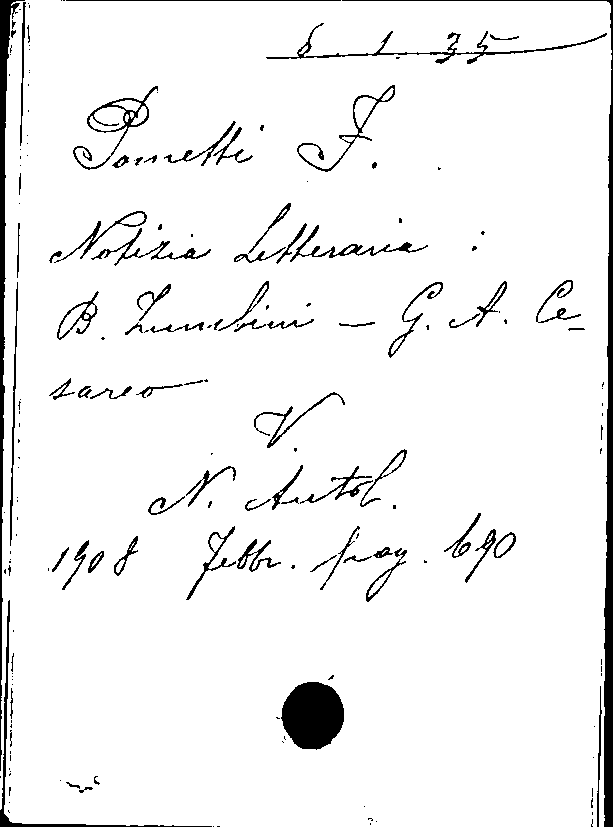 6. 1. 35
Pometti F.
Notizia Letteraria :
B. Zumbini – G. A. Ce-
sareo
V.
N. Antol.
1908 Febbr. pag. 690